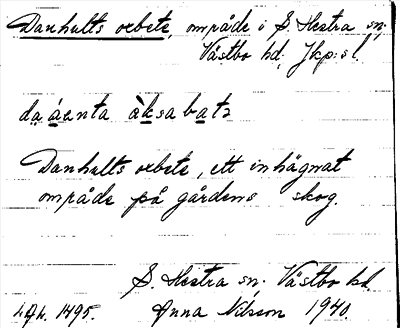 Danhults oxbete, område i S. Hestra sn.
Västbo hd. Jkp:s l.
Danhults oxbete, ett inhägnat
område på gårdens skog.
S. Hestra sn. Västbo hd.
1495. Anna Nilsson 1940.